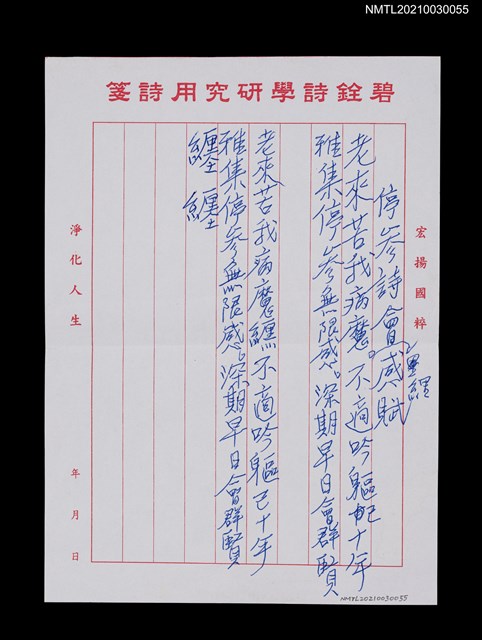 NMTL20210030055
碧銓詩學研究用詩箋
宏揚國粹
停參詩會感賦
老來苦我病魔。不適吟軀已十年
雅集停參無限感。深期早日會群賢
老來苦我病魔纏不適吟軀已十年
雅集停參無限感。深期早日會群賢
纏 纏
淨化人生
年 月 日
NMTL20210030055